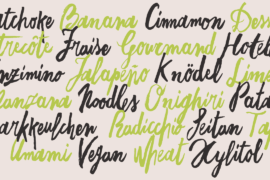 tichoke Banana Cinnamon Dess
trecôte Fraise Gourmand Hotel
nzimino Jalapeño Knödel Lime
anzana Noodles Onighiri Pata
arkkeulchen Radicchio Seitan Ta
Umami Vegan Wheat Xylitol